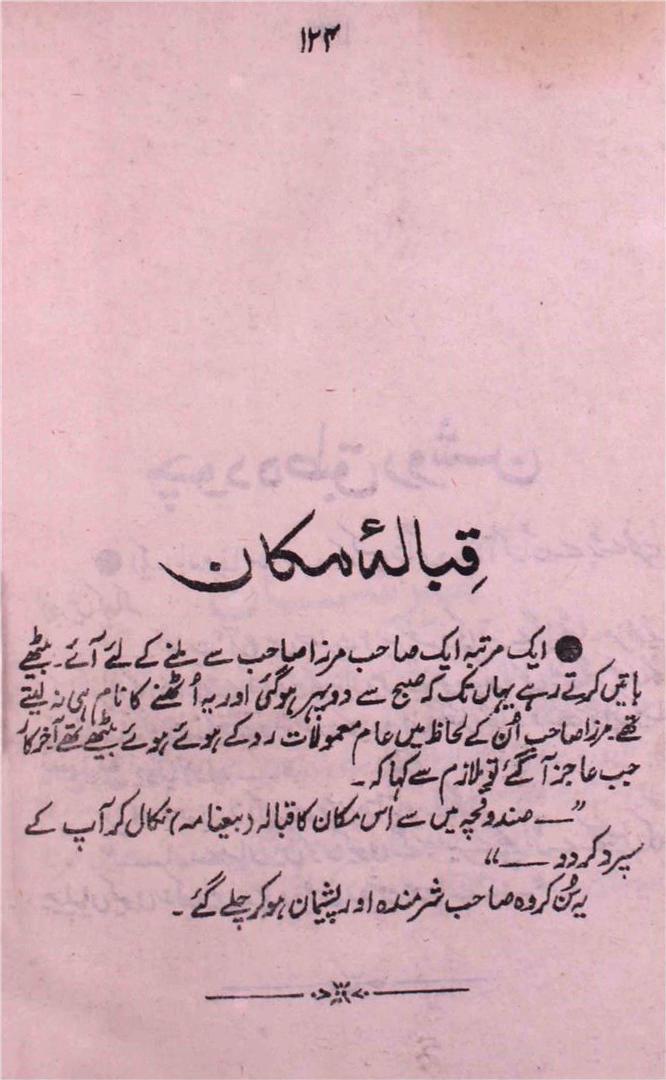 ۱۲۴
قبالۂ مکان
● ایک مرتبہ ایک صاحب مرزا صاحب سے ملنے کے لئے آئے۔ بیٹھے
باتیں کرتے رہے یہاں تک کہ صبح سے دوپہر ہوگئی اور یہ اُٹھنے کا نام ہی نہ لیتے
تھے۔ مرزا صاحب اُن کے لحاظ میں عام معمولات رد کے ہوئے ہوئے بیٹھے تھے آخر کار
جب عاجز آگئے تو ملازم سے کہا کہ۔
”— صندوقچہ میں سے اس مکان کا قبالہ (بیعنامہ) نکال کر آپ کے
سپرد کر دو —“
یہ سُن کر وہ صاحب شرمندہ اور پشیمان ہو کر چلے گئے۔